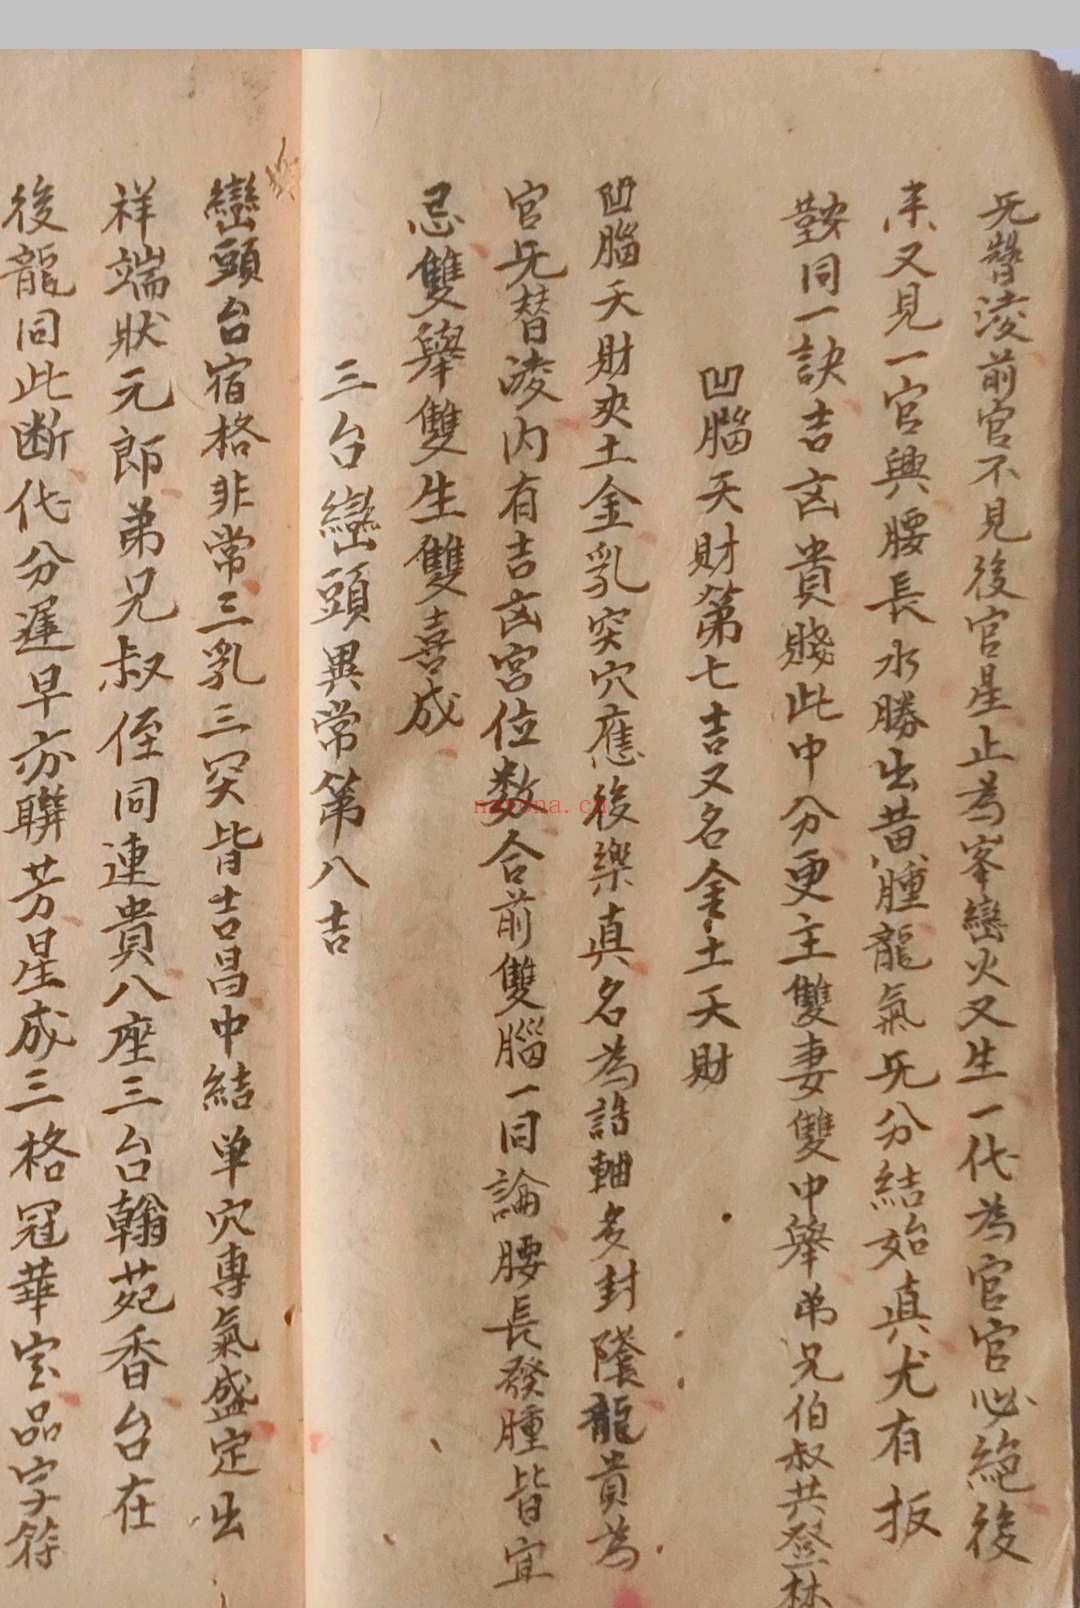 旡替凌前官不見後官星止為峯巒火又生一代為官官必絕後
来又見一官興腰長水勝出黄腫龍氣旡分結始真尤有扳
鞍同一訣吉㐫貴賤此中分更主雙妻雙中舉弟兄伯叔共登林
凹腦天財第七吉又名金土天財
凹腦天財夾土金乳突穴應後樂真名為誥軸多封隲龍貴為
官旡替凌内有吉㐫宮位数合前雙腦一同論腰長發腫皆宜
忌雙舉雙生雙喜成
三台巒頭異常第八吉
巒頭台宿格非常三乳三突皆吉昌中結单穴專氣盛定出
祥端狀元郎弟兄叔侄同連貴八座三台翰苑香台在
後龍同此断代分遲早亦聨芳星成三格冠華宝品字符